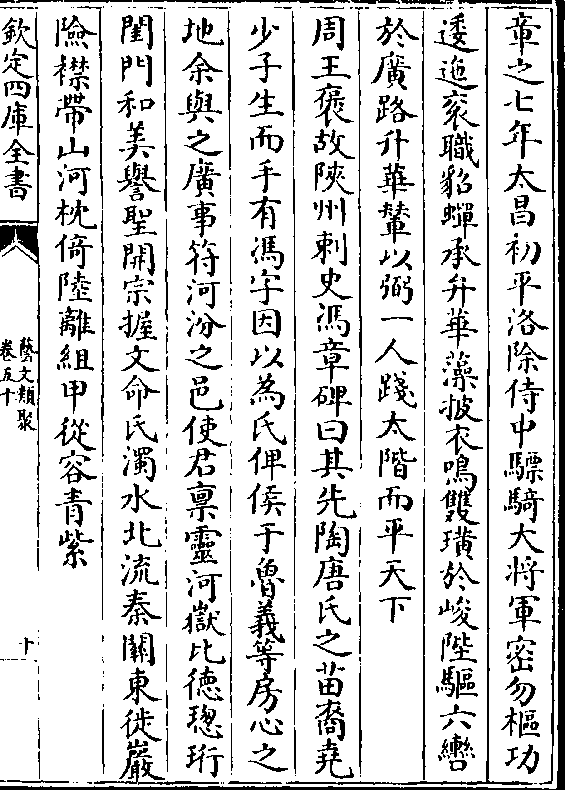 章之七年太昌初平洛除侍中驃騎大將軍密勿樞功
逶迤衮職貂蟬承弁華藻披衣鳴雙璜於峻陛驅六轡
於廣路升華輦以弼一人踐太階而平天下
周王襃故陜州刺史馮章碑曰其先陶唐氏之苗裔堯
少子生而手有馮字因以為氏俾侯于魯義等房心之
地余與之廣事符河汾之邑使君禀靈河嶽比德璁珩
閨門和美譽聖開宗握文命氏濁水北流秦關東徙巖
險襟帶山河枕倚陸離組甲從容青紫
欽定四庫全書
藝文類聚
卷五十